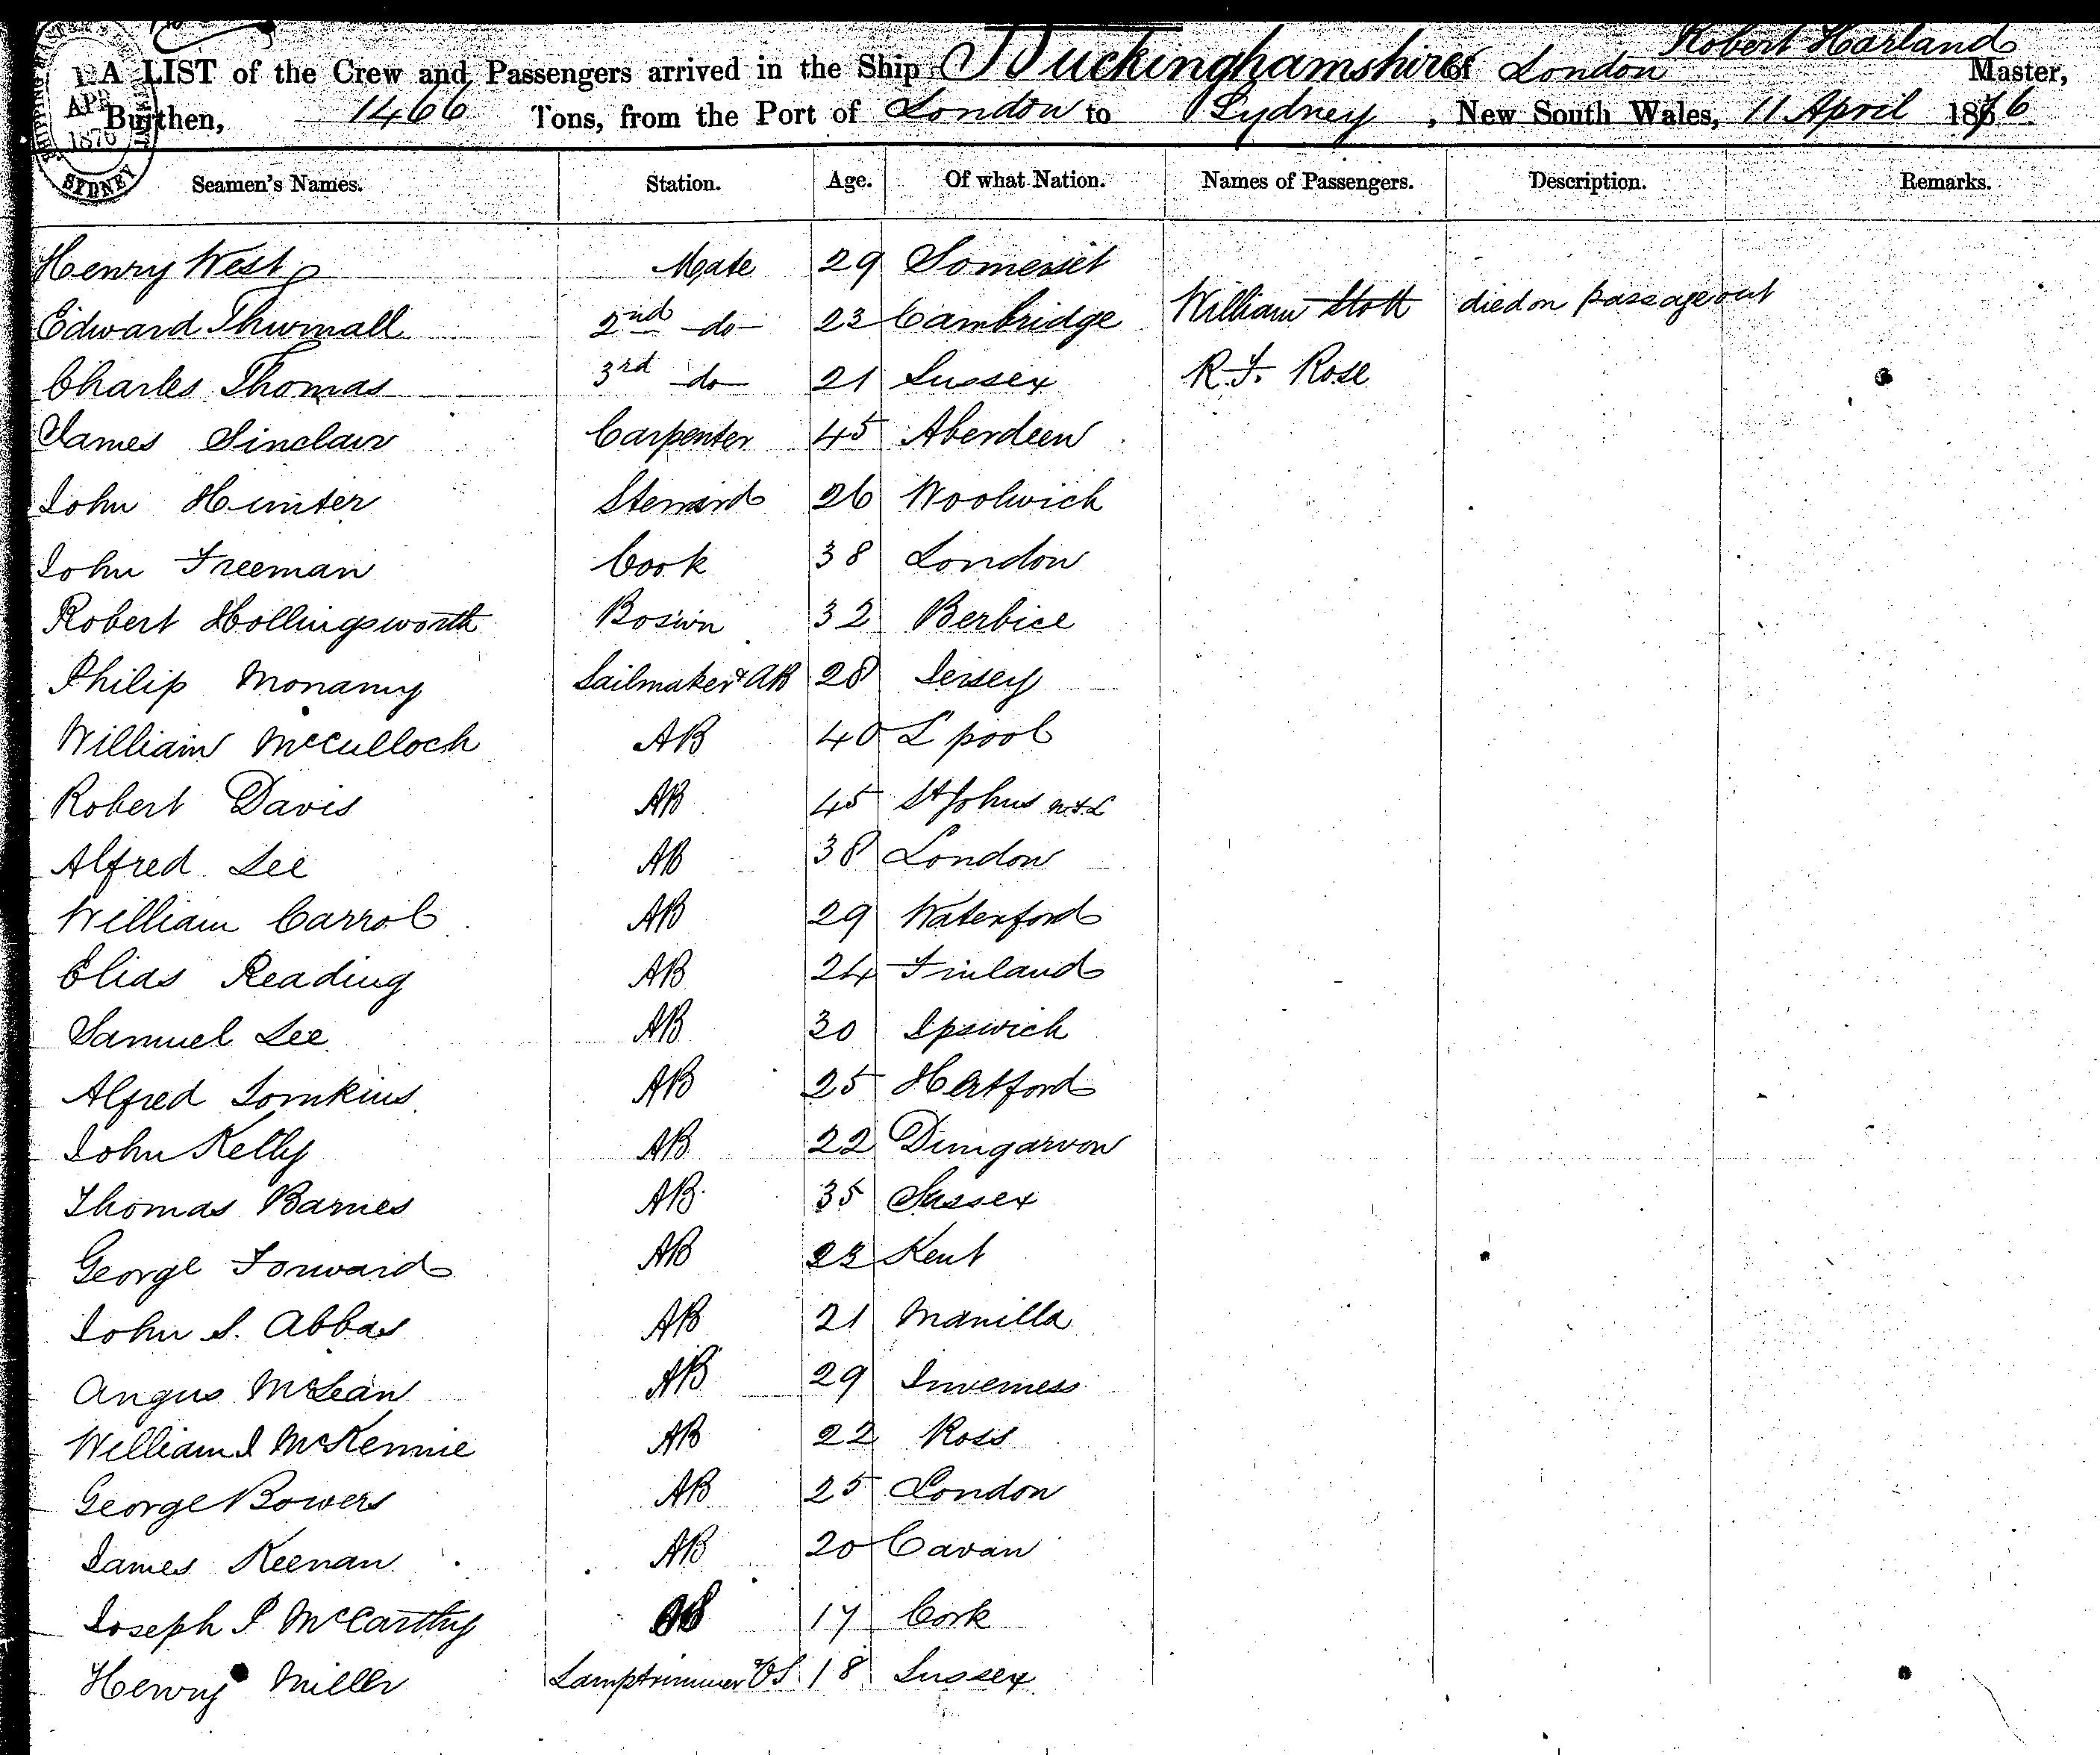 Robert Harland
A LIST of the Crew and Passengers arrived in the Ship Buckinghamshire of London Master,
Burthen, 1466 Tons, from the Port of London to Sydney, New South Wales, 11 April 1876
APR
1876
SYDNEY
Seamen's Names. Station. Age. Of what Nation. Names of Passengers. Description. Remarks.
Henry West Mate 29 Somerset
Edward Thurnall 2nd do 23 Cambridge William Stott died on passage out
Charles Thomas 3rd do 21 Sussex R. F. Rose
James Sinclair Carpenter 45 Aberdeen
John Hunter Steward 26 Woolwich
John Freeman Cook 38 London
Robert Hollingsworth Bos'wn 32 Berbice
Philip Monamy Sailmaker & AB 28 Jersey
William McCulloch AB 40 L'pool
Robert Davis AB 45 St Johns
Alfred Lee AB 38 London
William Carrol AB 29 Waterford
Elias Reading AB 24 Finland
Samuel Lee AB 30 Ipswich
Alfred Tomkins AB 25 Hertford
John Kelly AB 22 Dungarvon
Thomas Barnes AB 35 Sussex
George Forward AB 23 Kent
John S. Abbas AB 21 Manilla
Angus McLean AB 29 Inverness
William J McKennie AB 22 Ross
George Bowers AB 25 London
James Keenan AB 20 Cavan
Joseph P McCarthy OS 17 Cork
Henry Miller Lamptrimmer & OS 18 Sussex